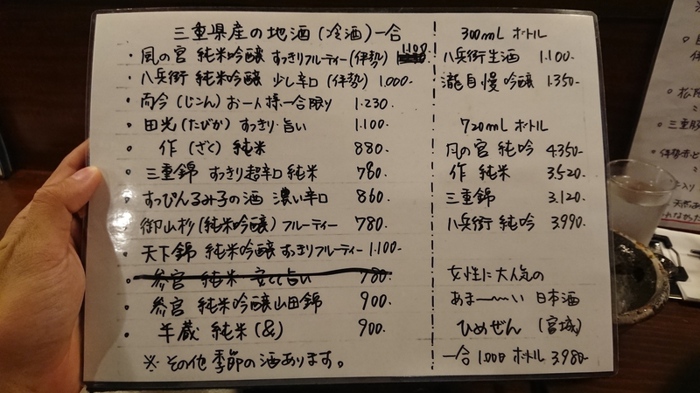 三重県産の地酒(冷酒)一合
・風の宮 純米吟醸 すっきりフルーティー(伊勢) 1.100
・八兵衛 純米吟醸 少し辛口(伊勢) 1.000-
・而今(じこん)お一人様一合限り 1.230-
・田光(たびか)すっきり・旨い 1.100-
・作(ざく)純米 880-
・三重錦 すっきり超辛口 純米 780-
・すっぴんるみ子の酒 濃い辛口 860-
・御山杉(純米吟醸)フルーティー 780-
・天下錦 純米吟醸 すっきりフルーティー 1.100-
・参宮 純米 安くて旨い 780-
・参宮 純米吟醸山田錦 900-
・半蔵 純米(&) 900-
※その他季節の酒あります。
300mL ボトル
八兵衛生酒 1.100-
瀧自慢吟醸 1.350-
720mL ボトル
風の宮 純吟 4.350-
作 純米 3.520-
三重錦 3.120-
八兵衛 純吟 3.990-
女性に大人気の
あま〜〜い 日本酒
ひめぜん(宮城)
一合1.000 ボトル3.980-